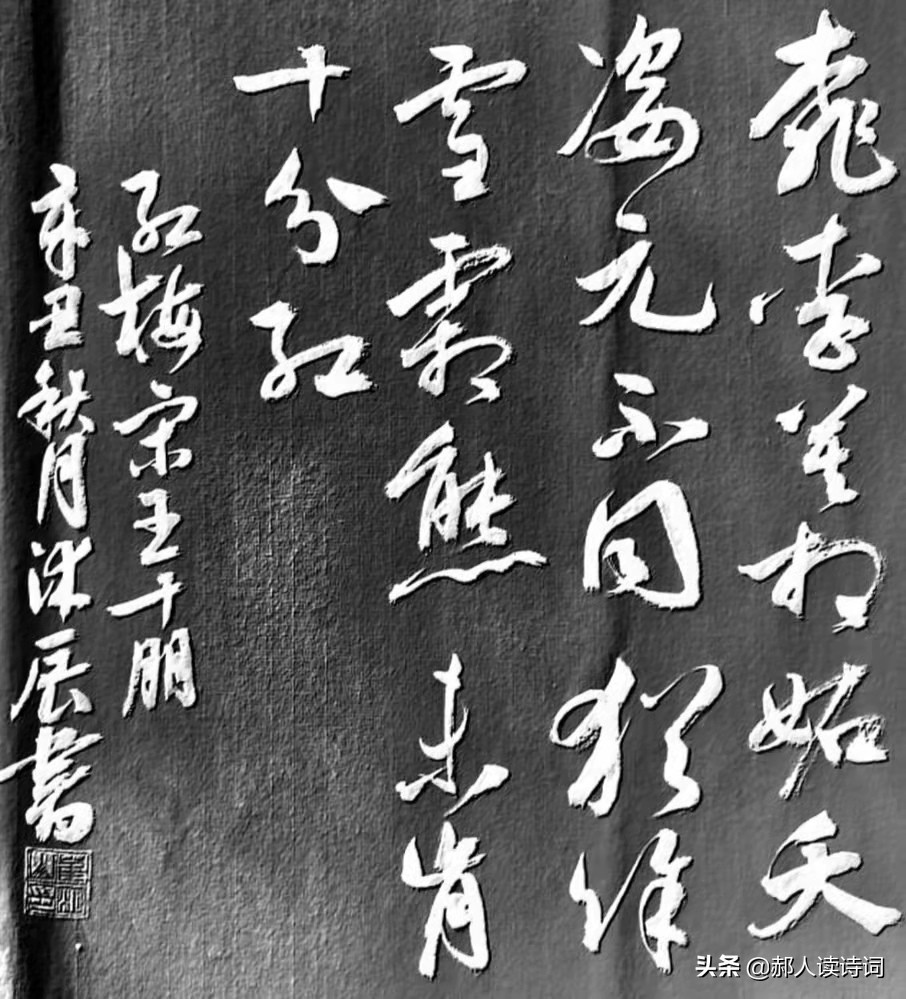 桃李莫相妬夭
姿元不同猶餘
雪霜態未肯
十分紅
紅梅宋王十朋
辛丑秋月沐辰書
头条 @郝人读诗词